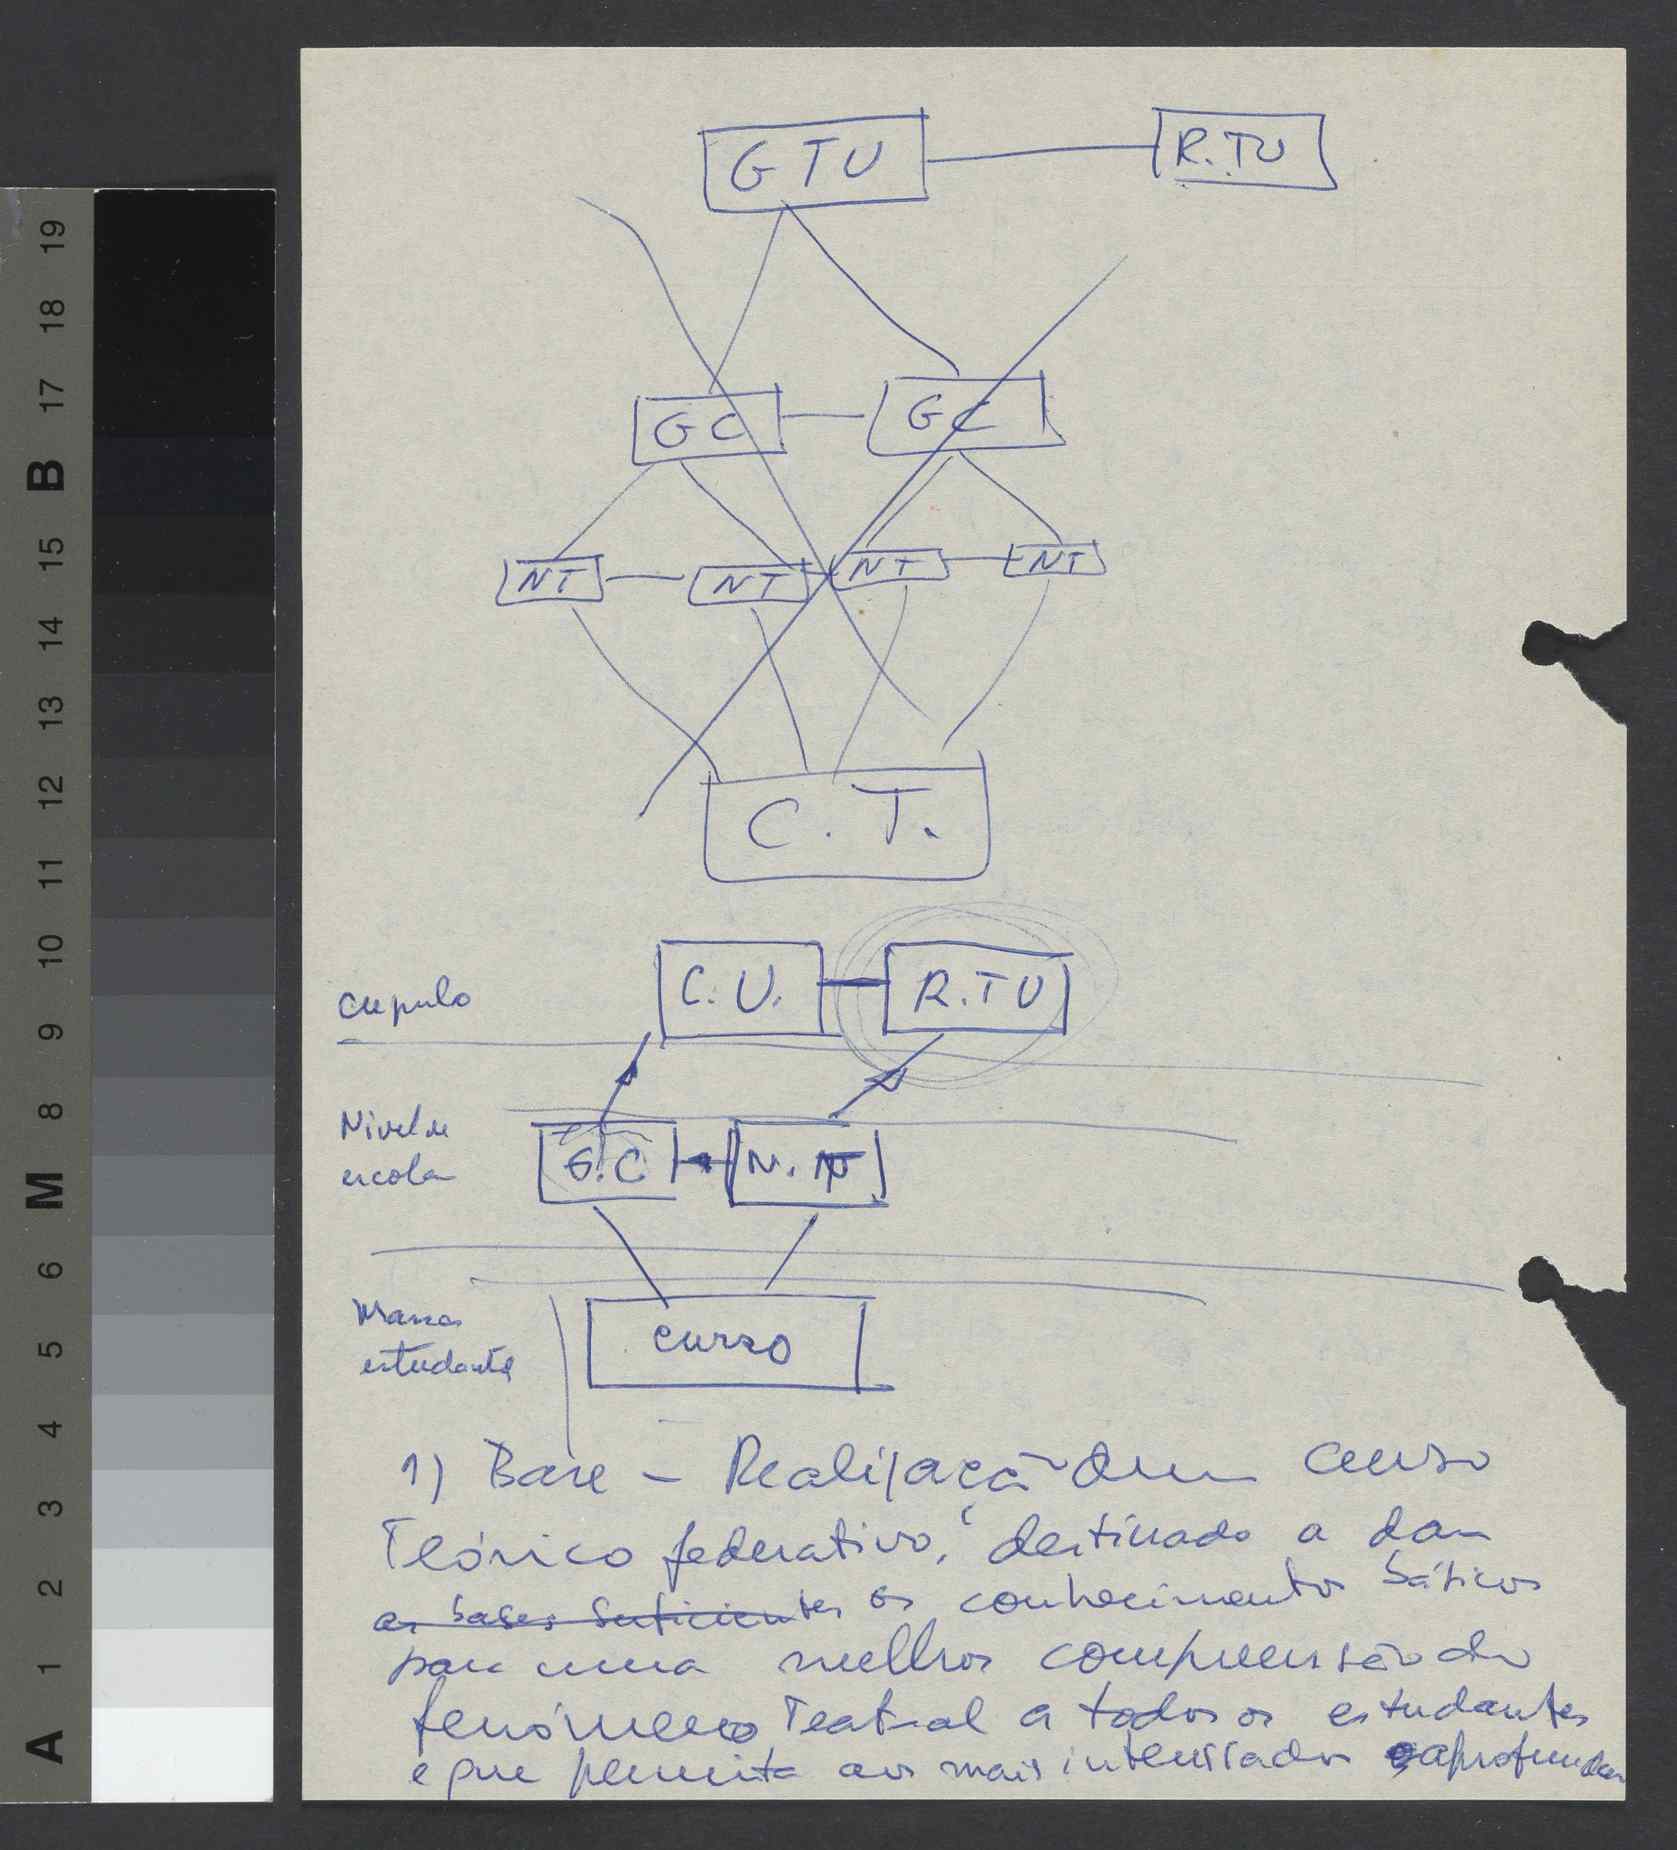 GTU R.TU
GC GC
NT NT NT NT
C. T.
C.U. R.TU
Cupula
Nivel de
escola
G.C N.
Massa
estudante
curso
1) Base — Realização dum curso
Teórico federativo, destinado a dar
as bases suficientes os conhecimentos básicos
para uma melhor compreensão do
fenómeno Teatral a todos os estudantes
e que permita aos mais interessados aprofundar
19
18
17
B
15
14
13
12
11
10
9
8
M
6
5
4
3
2
1
A